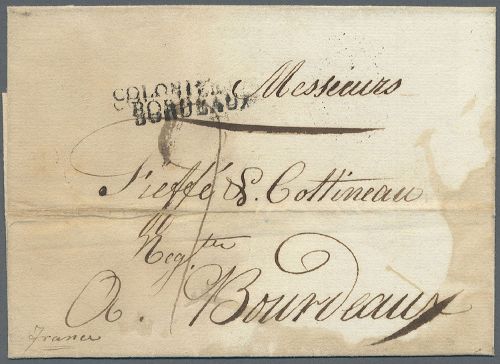 COLONIES
BORDEAUX
Messieurs
Pieffé & Cottineau
Neg.ts
A. Bourdeaux
France